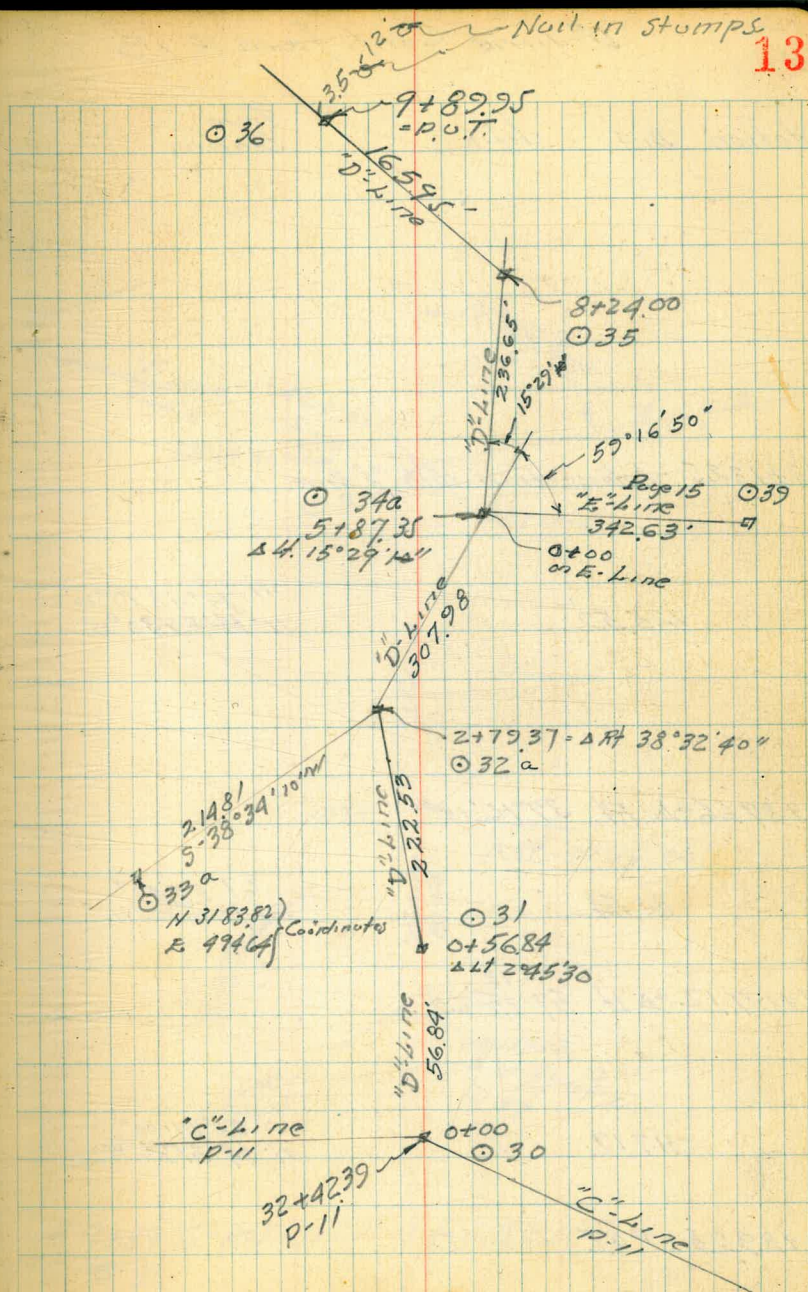 Nail in Stumps
13
12'
13.5
9+89.95
= P.O.T.
⊙ 36
165.95
"D"-Line
8+24.00
⊙ 35
"D"-Line
236.65'
15°29'
59°16'50"
⊙ 34a
5+87.35
Δ Lt. 15°29'
Page 15
"E"-Line
342.63'
⊙ 39
0+00
on E-Line
"D"-Line
307.98
2+79.37 = Δ Rt 38°32'40"
⊙ 32a
214.81
S-38°34'10"W
⊙ 33a
N 3183.82
E 494.64
Coordinates
"D"-Line
222.53
⊙ 31
0+56.84
Δ Lt 2°45'30
"D"-Line
56.84'
"C"-Line
P-11
0+00
⊙ 30
32+42.39
P-11
"C"-Line
P-11